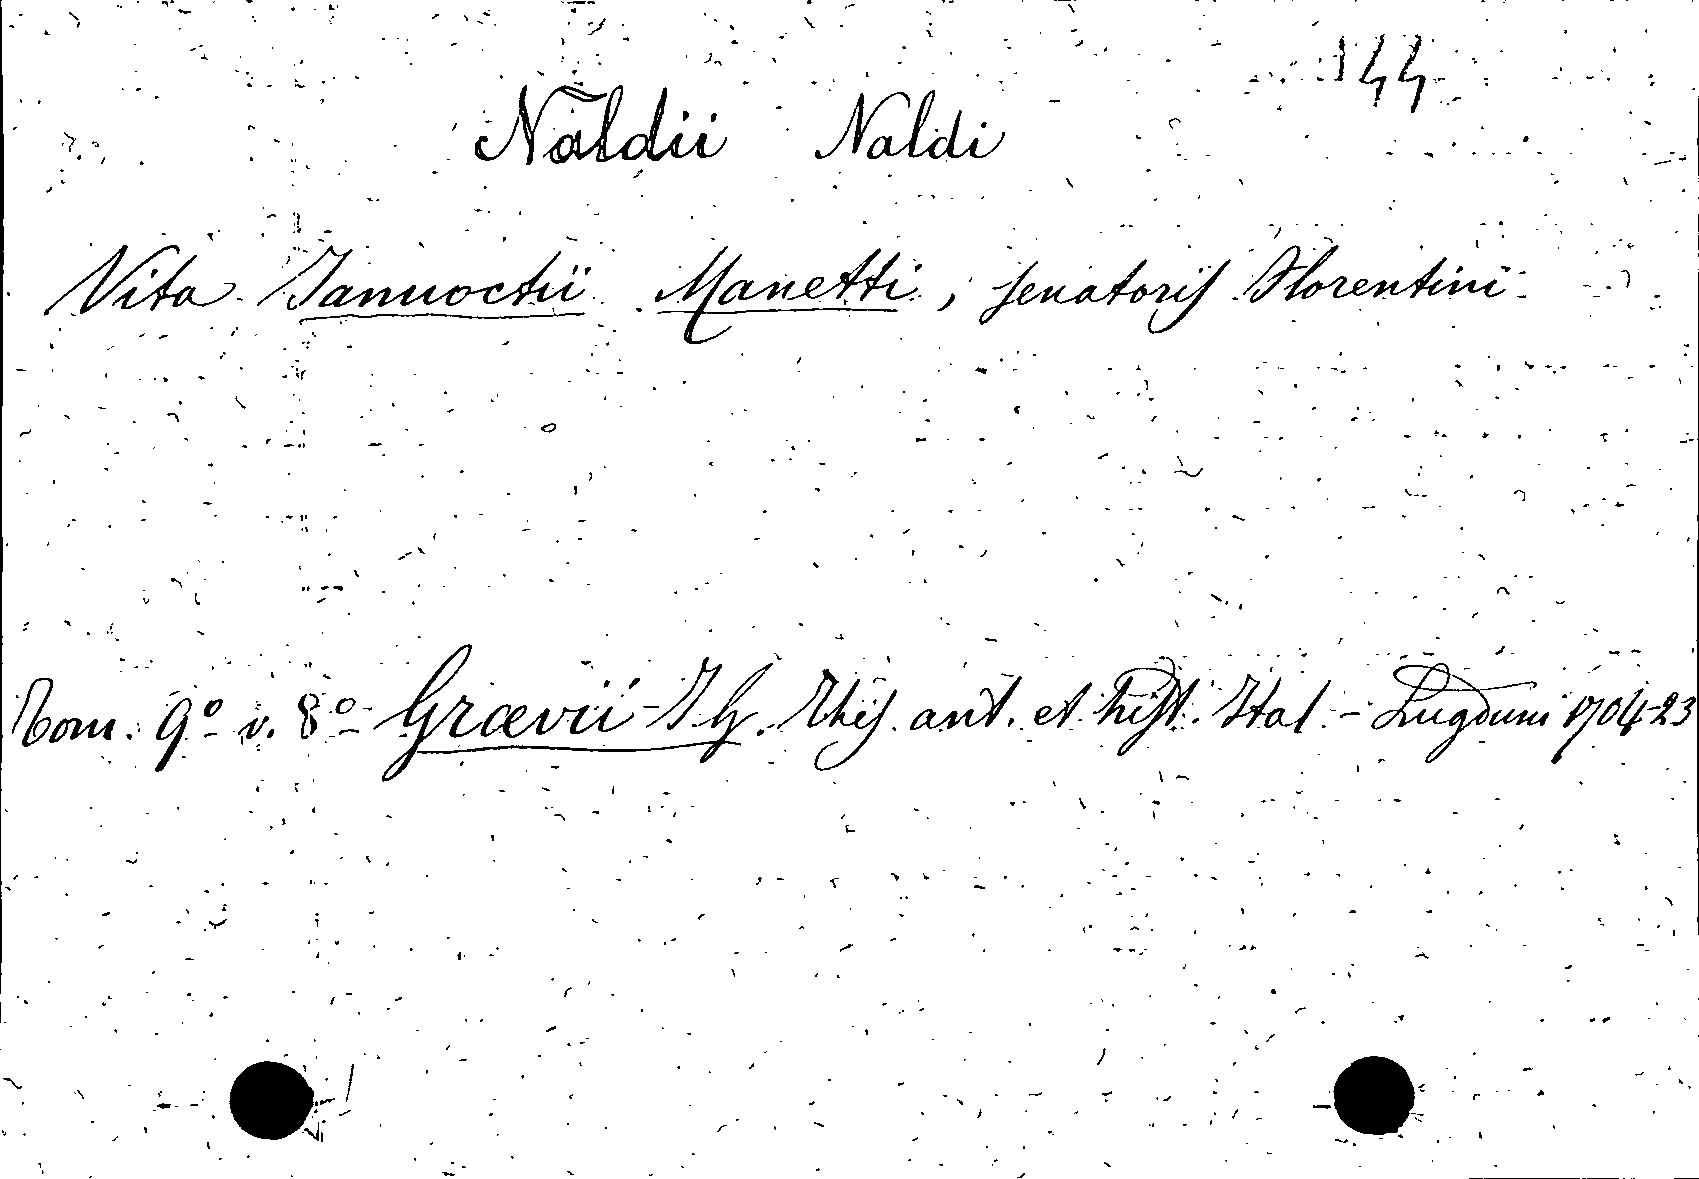 144
Naldii Naldi
Vita Jannoctii Manetti, senatoris Florentini
Tom. 9º v. 8º Grævii J G. Thes. ant. et hist. Ital. - Lugduni 1704-23